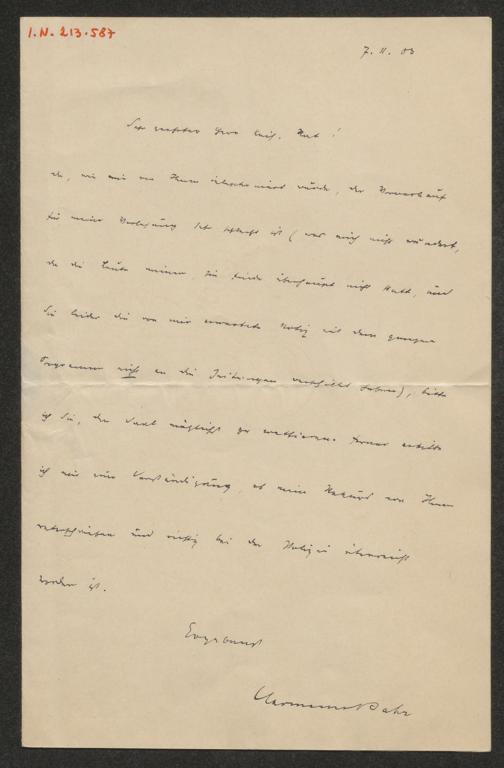 I.N. 213.587
7. II. 03
Sehr geehrter Herr kais. Rat!
da, wie mir von Ihnen telefoniert wurde, der Vorverkauf
für meine Vorlesung sehr schlecht ist (was mich nicht wundert,
da die Leute meinen, sie finde überhaupt nicht statt, weil
Sie leider die von mir erwartete Notiz mit dem ganzen
Programm nicht an die Zeitungen verschickt haben), bitte
ich Sie, den Saal möglichst zu wattieren. Ferner erbitte
ich mir eine Verständigung, ob mein Rekurs von Ihnen
unterschrieben und richtig bei der Polizei überreicht
worden ist.
Ergebenst
Hermann Bahr